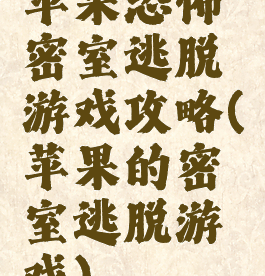 苹果恐怖
密室逃脱
游戏攻略(
苹果的密
室逃脱游
戏)